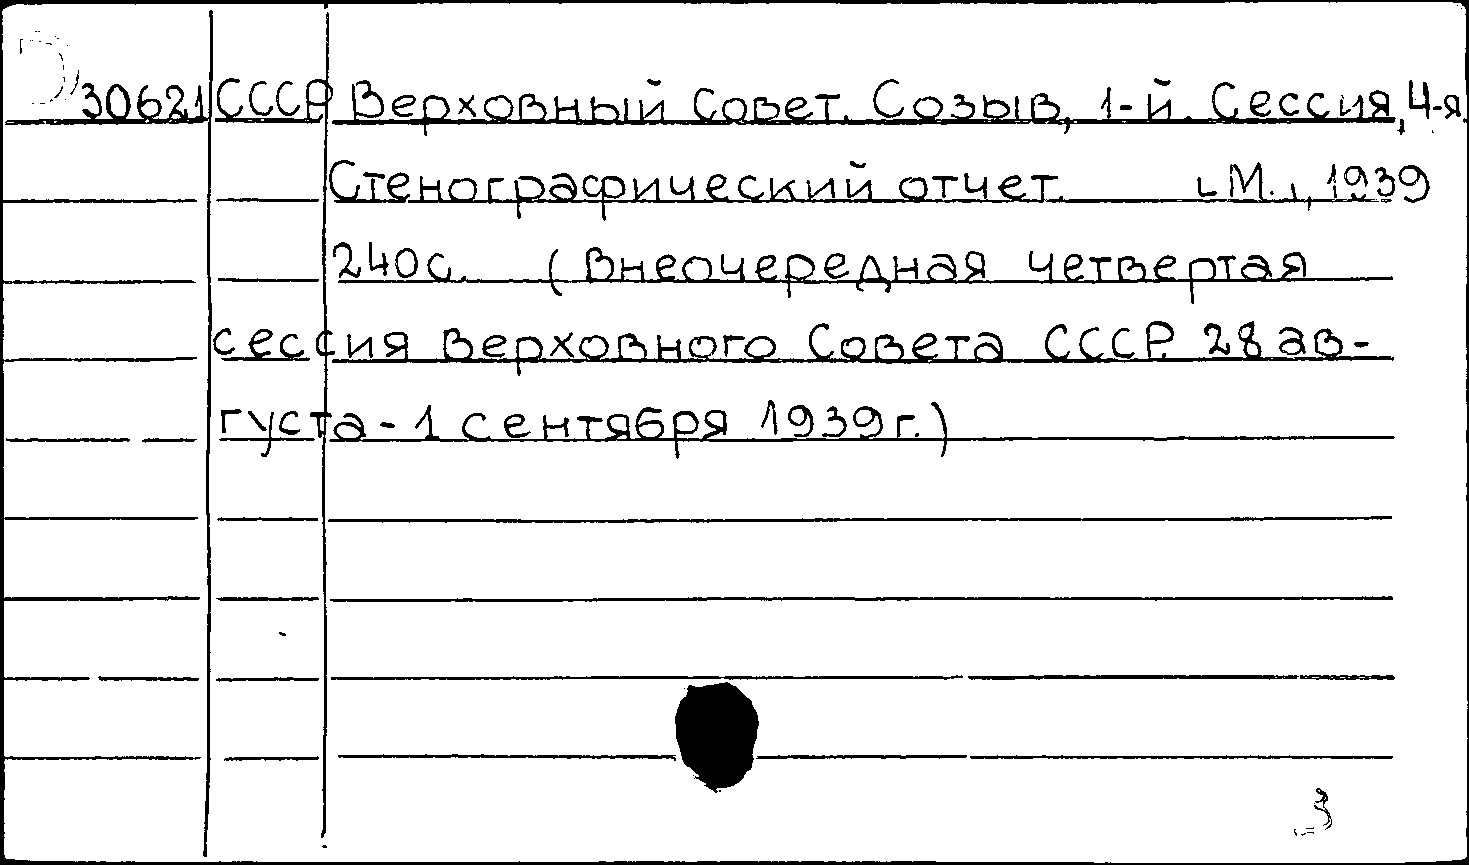 30621 СССР. Верховный Совет. Созыв, 1-й. Сессия, 4-я.
Стенографический отчет. [М.], 1939
240с. (Внеочередная четвертая
сессия Верховного Совета СССР. 28 ав-
густа - 1 сентября 1939г.)
3